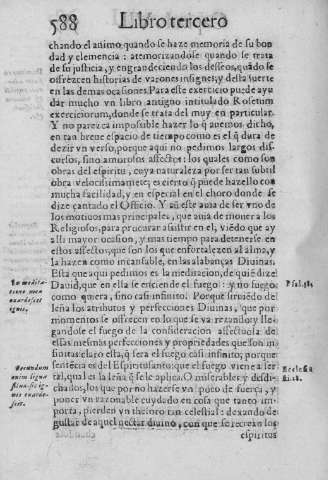 588 Libro tercero
chando el animo quando se haze memoria de su bon
dad y clemencia: atemorizandose quando se trata
de su justicia, y engrandeciendo los desseos, quãdo se
ofrezcen historias de varones insignes, y desta suerte
en las demas ocasiones. Para este exercicio puede ayu
dar mucho vn libro antiguo intitulado Rosetum
exercitiorum, donde se trata del muy en particular.
Y no parezca impossible hazer lo q̃ auemos dicho,
en tan breue espacio de tiempo como es el q̃ dura de
dezir vn verso, porque aqui no pedimos largos dis
cursos, sino amorosos affectos: los quales como son
obras del espiritu, cuya naturaleza por ser tan subtil
obra velocissimamente; es cierto q̃ puede hazello con
mucha facilidad, y en especial en el choro donde se
dize cantado el Officio. Y aũ este auia de ser vno de
los motiuos mas principales, que auia de mouera los
Religiosos, para procurar assistir en el, viẽdo que ay
alli mayor ocasion, y mas tiempo para detenerse en
estos affectos, que son los que enfortalezen al alma, y
la hazen como incansable, en las alabanças Diuinas.
Esta que aqui pedimos es la meditacion, de quiẽ dize
Dauid, que en ella se enciende el fuego: y no fuego
como quiera, sino casi infinito. Porque siruiẽdo de
leña los atributos y perfecciones Diuinas, que por
momentos se offrecen en lo que se va rezando y lle
gandose el fuego de la consideracion affectuosa de
estas mesmas perfecciones y propriedades que son in
finitas claro esta, q̃ sera el fuego casi infinito; porque
sentẽcia es del Espiritusanto: que el fuego viene a ser
tal, qual es la leña q̃ se le aplica. O miserables y desdi
chados, los que por no hazerse vn poco de fuerça, y
poner vn razonable cuydado en cosa que tanto im
porta, pierden vn thesoro tan celestial: dexando de
gustar de aquel nectar diuino, con que se recrean los
espiritus
In medita
tione mea
exardescet
ignis.
Psal. 38.
Secundum
enim ligna
siluæ sic ig
nis exarde-
scet.
Ecclesia
sti. 28.